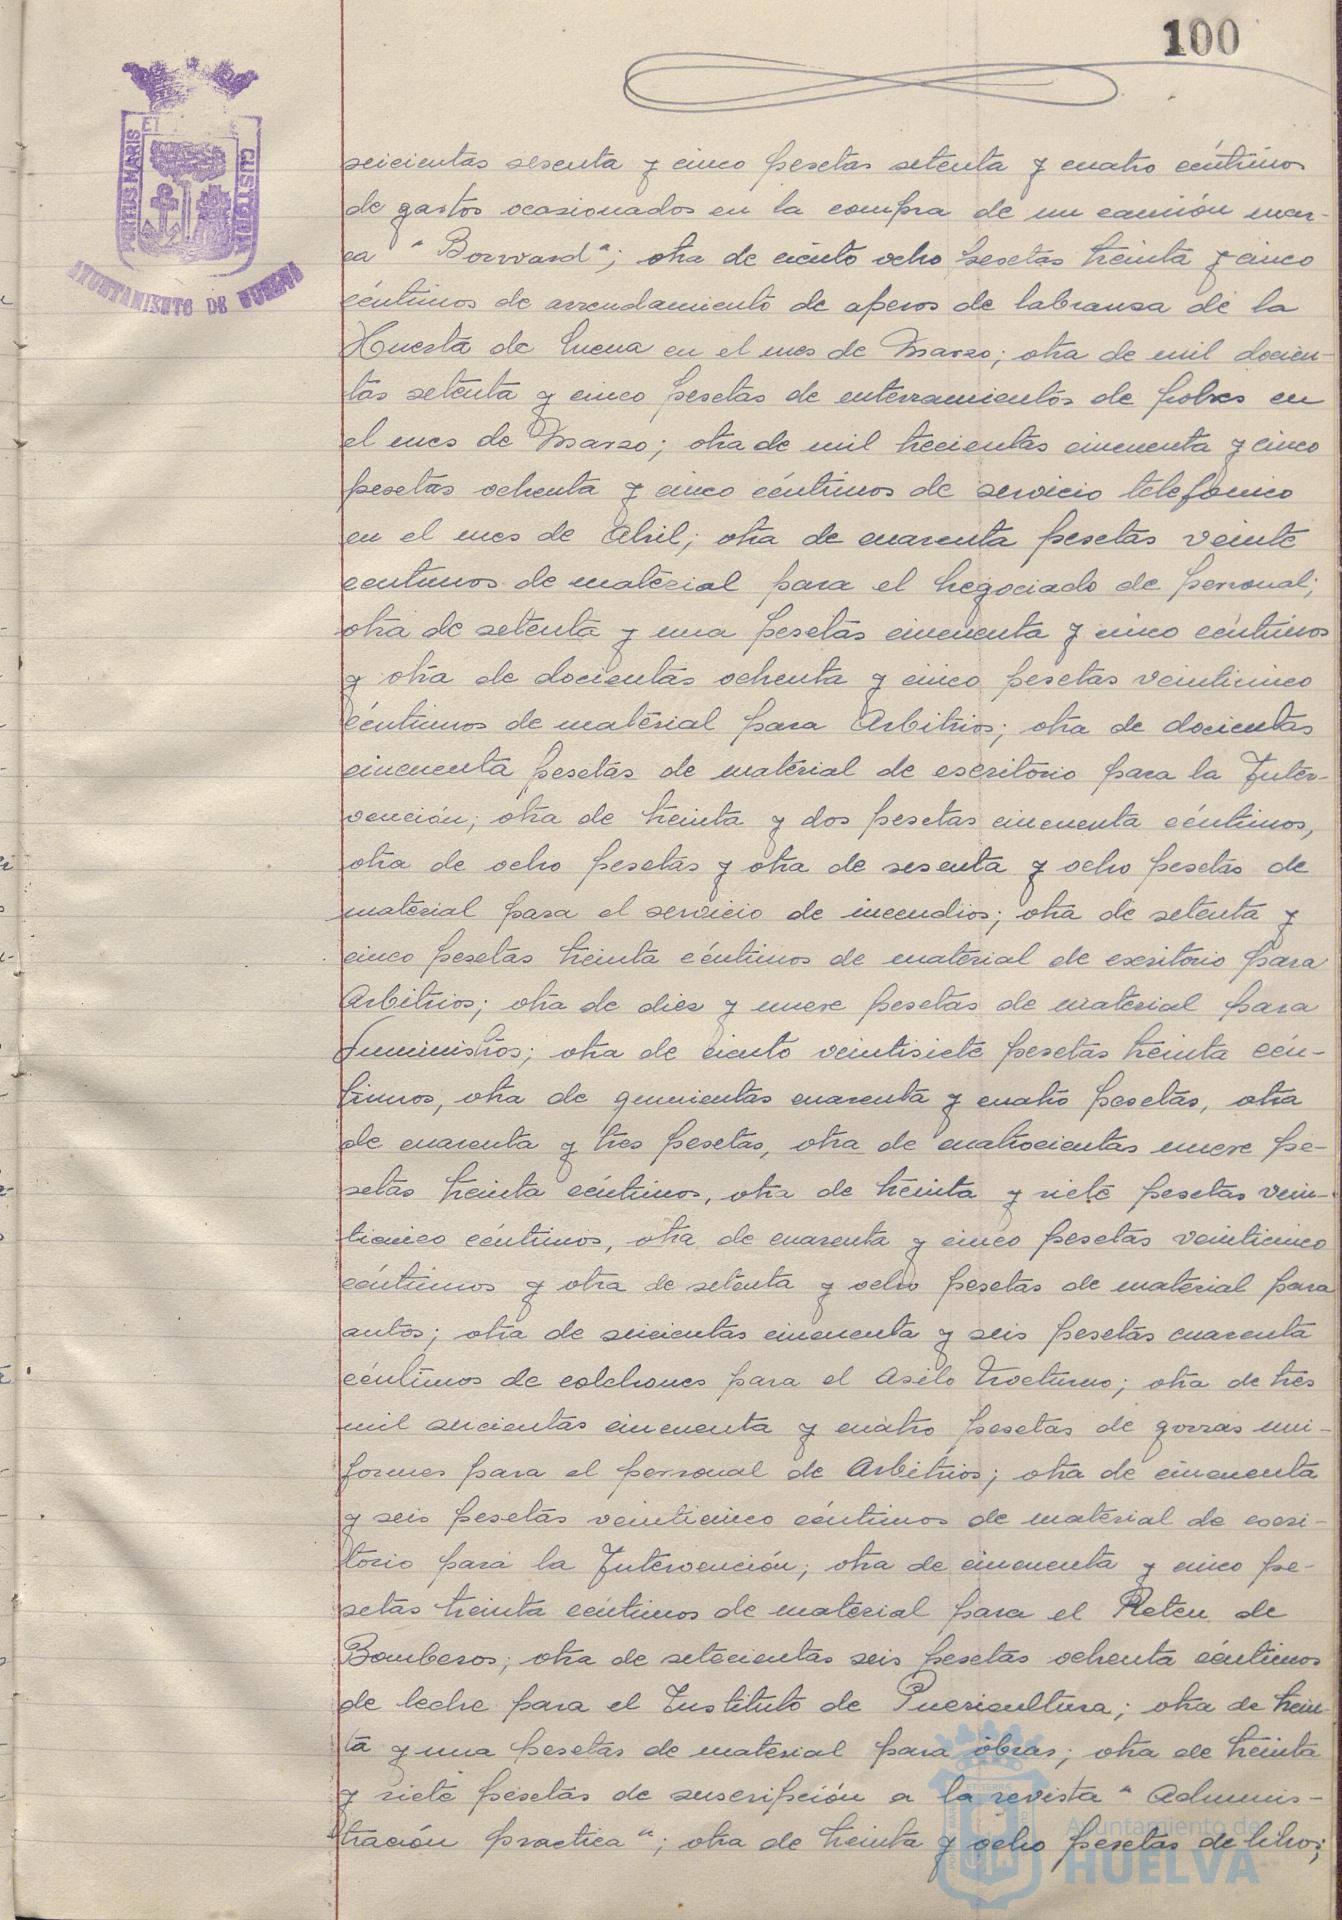 100
PORTUS MARIS ET CUSTODIA
AYUNTAMIENTO DE HUELVA
seicientas sesenta y cinco pesetas setenta y cuatro céntimos
de gastos ocasionados en la compra de un camión mar-
ca "Borward"; otra de ciento ocho pesetas treinta y cinco
céntimos de arrendamiento de aperos de labranza de la
Huerta de Mena en el mes de Marzo; otra de mil docien-
tas setenta y cinco pesetas de enterramientos de pobres en
el mes de Marzo; otra de mil trecientas cincuenta y cinco
pesetas ochenta y cinco céntimos de servicio telefonico
en el mes de Abril; otra de cuarenta pesetas veinte
centimos de material para el Negociado de personal;
otra de setenta y una pesetas cincuenta y cinco céntimos
y otra de docientas ochenta y cinco pesetas veinticinco
céntimos de material para Arbitrios; otra de docientas
cincuenta pesetas de material de escritorio para la Inter-
vención; otra de treinta y dos pesetas cincuenta céntimos,
otra de ocho pesetas y otra de sesenta y ocho pesetas de
material para el servicio de incendios; otra de setenta y
cinco pesetas treinta céntimos de material de escritorio para
Arbitrios; otra de diez y nueve pesetas de material para
Suministros; otra de ciento veintisiete pesetas treinta cén-
timos, otra de quinientas cuarenta y cuatro pesetas, otra
de cuarenta y tres pesetas, otra de cuatrocientas nueve pe-
setas treinta céntimos, otra de treinta y siete pesetas vein-
ticinco céntimos, otra de cuarenta y cinco pesetas veinticinco
céntimos y otra de setenta y ocho pesetas de material para
autos; otra de seicientas cincuenta y seis pesetas cuarenta
céntimos de colchones para el Asilo Nocturno; otra de tres
mil seicientas cincuenta y cuatro pesetas de gorras uni-
formes para el personal de Arbitrios; otra de cincuenta
y seis pesetas veinticinco céntimos de material de escri-
torio para la Intervención; otra de cincuenta y cinco pe-
setas treinta céntimos de material para el Reten de
Bomberos; otra de setecientas seis pesetas ochenta céntimos
de leche para el Instituto de Puericultura; otra de trein-
ta y una pesetas de material para obras; otra de treinta
y siete pesetas de suscripción a la revista "Adminis-
tración practica"; otra de treinta y ocho pesetas de libros;
Ayuntamiento de
HUELVA